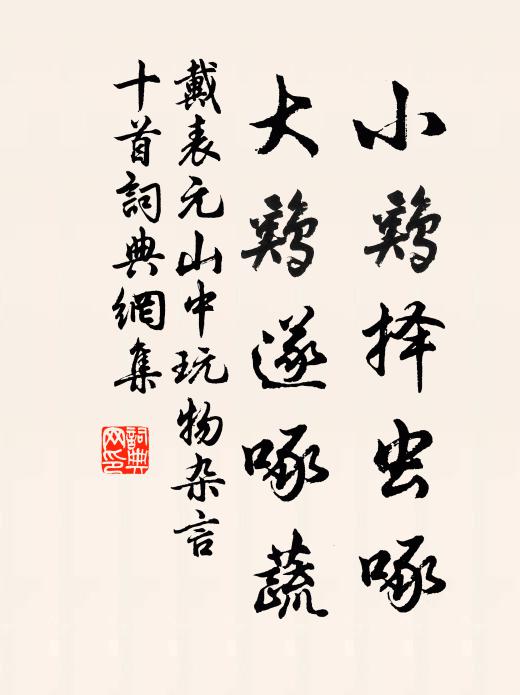 小鷄择虫啄
大鷄遂啄蔬
戴表元山中玩物杂言
十首詞典網集
詞典網印